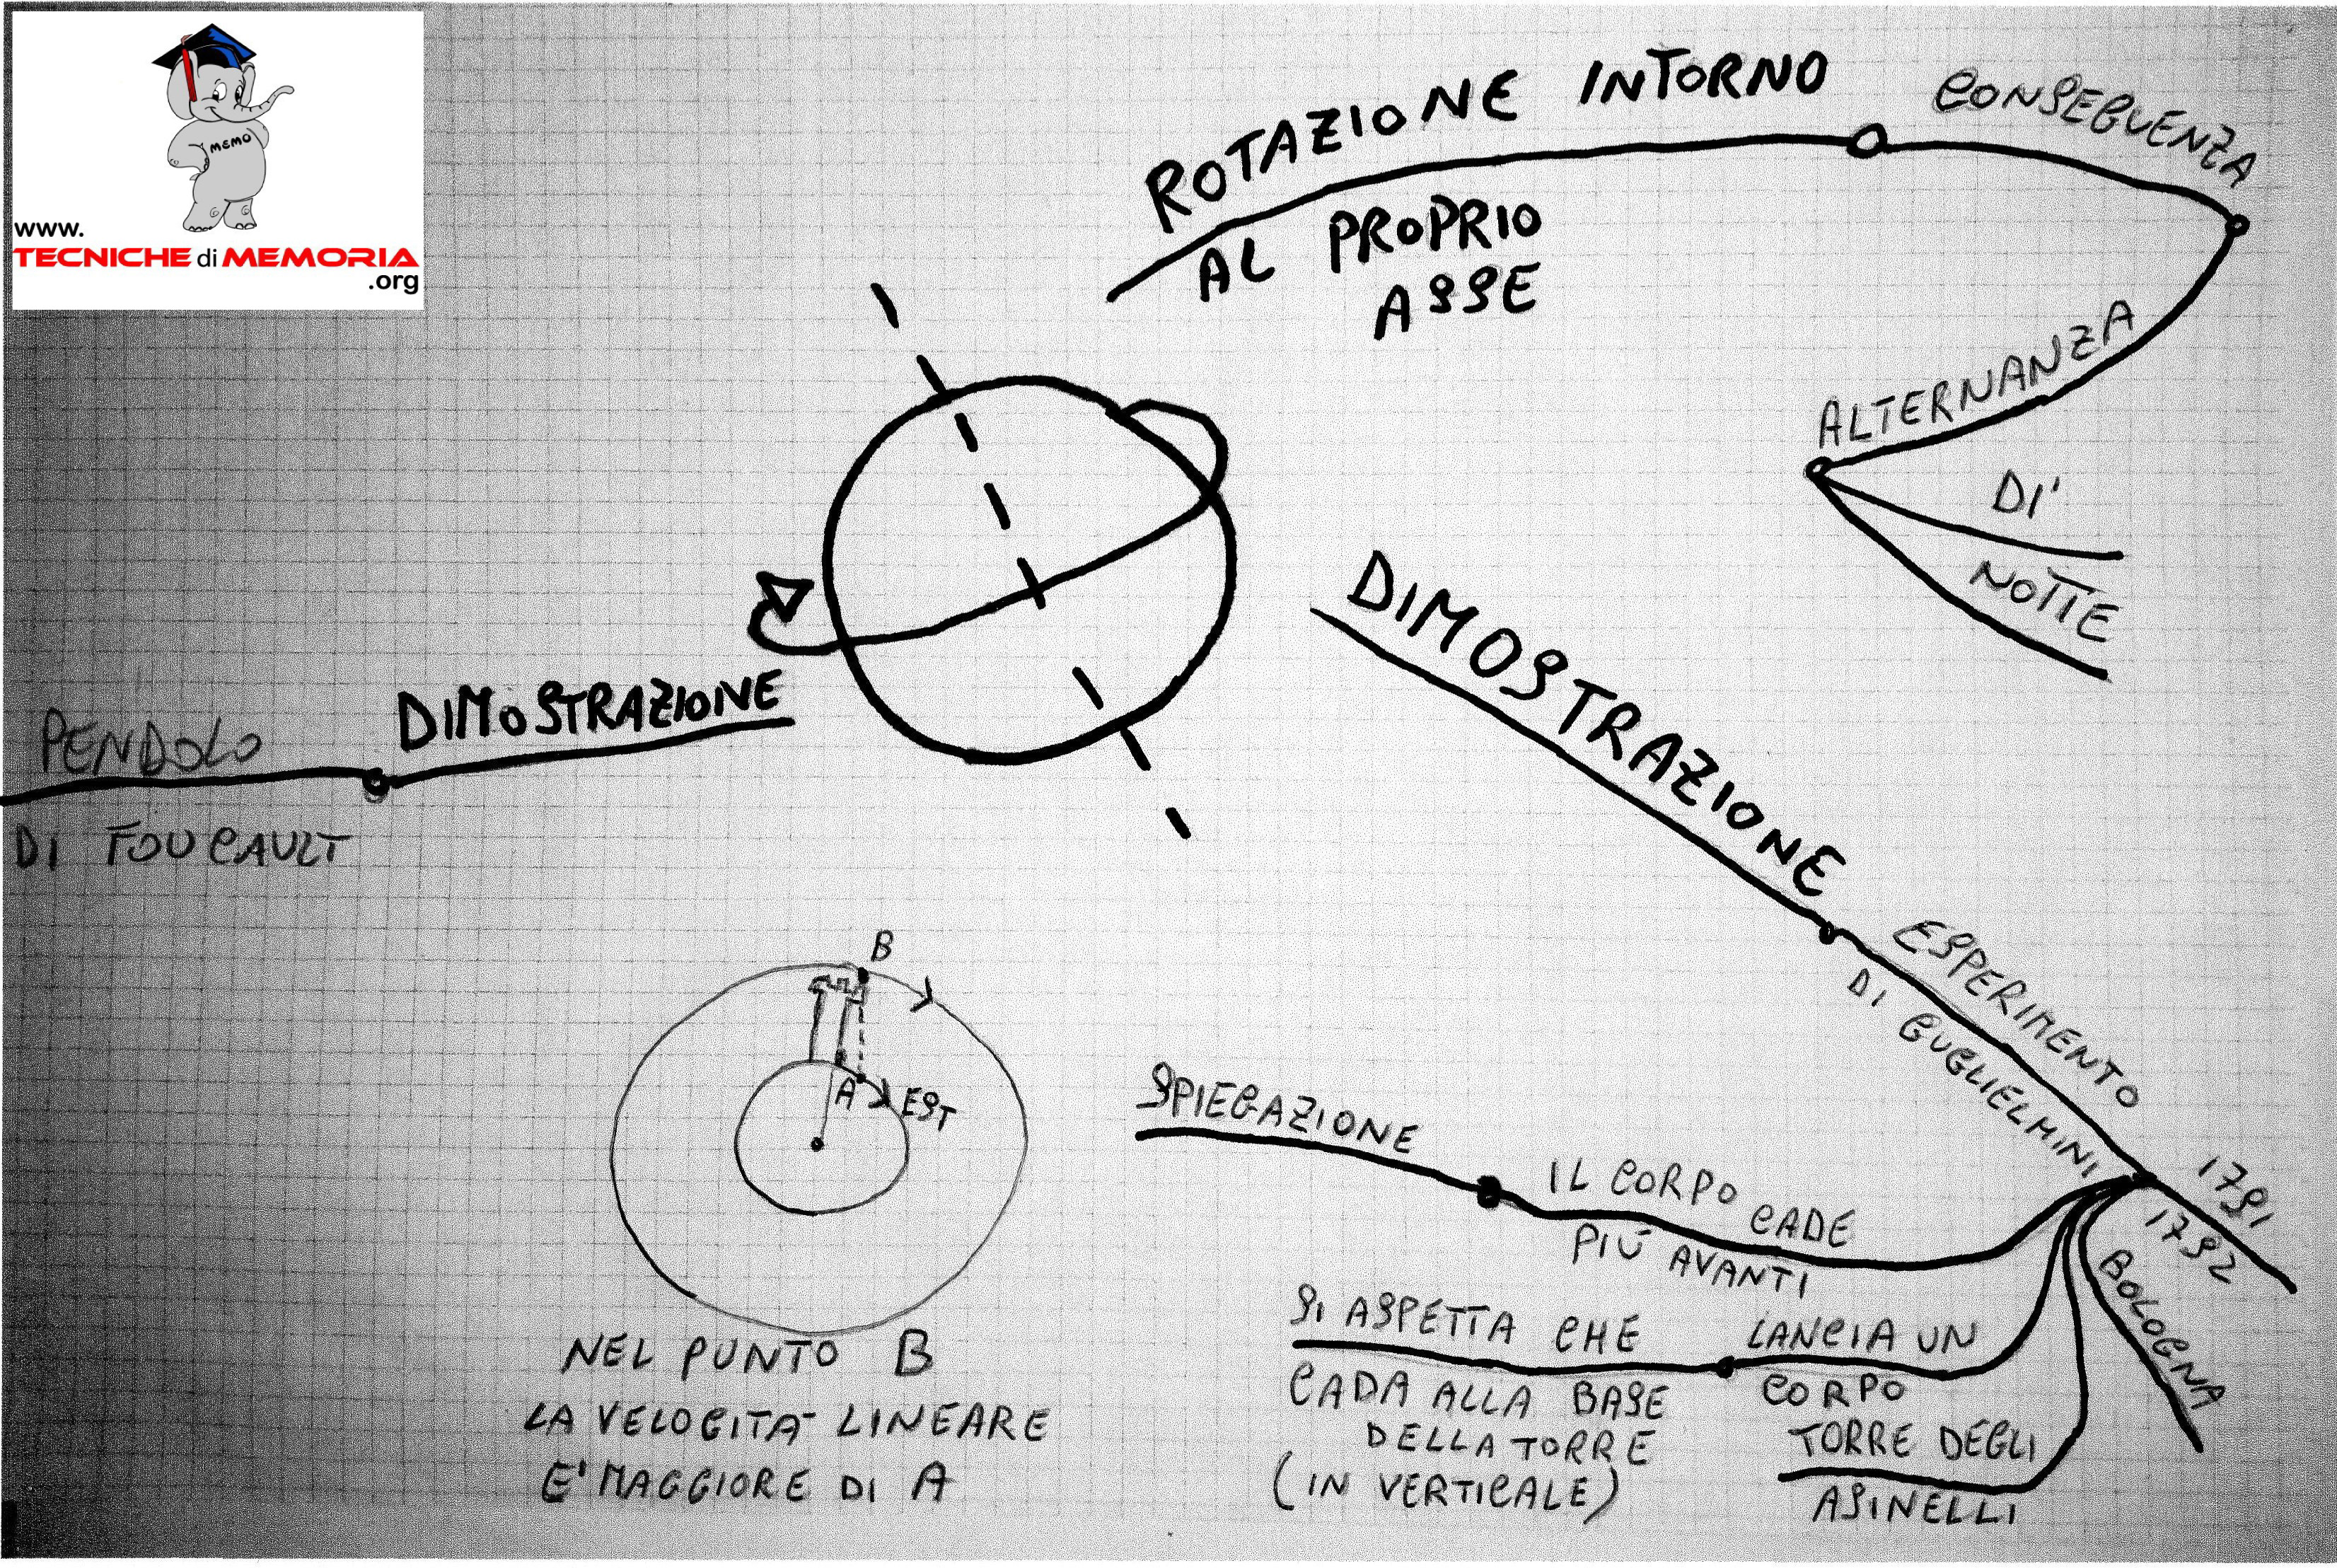 MEMO
www.
TECNICHE di MEMORIA
.org
ROTAZIONE INTORNO
AL PROPRIO
ASSE
CONSEGUENZA
ALTERNANZA
DI'
NOTTE
DIMOSTRAZIONE
PENDOLO
DI FOUCAULT
DIMOSTRAZIONE
ESPERIMENTO
DI GUGLIELMINI
1791
1792
BOLOGNA
B
A
EST
NEL PUNTO B
LA VELOCITA' LINEARE
E' MAGGIORE DI A
SPIEGAZIONE
IL CORPO CADE
PIÙ AVANTI
SI ASPETTA CHE
CADA ALLA BASE
DELLA TORRE
(IN VERTICALE)
LANCIA UN
CORPO
TORRE DEGLI
ASINELLI